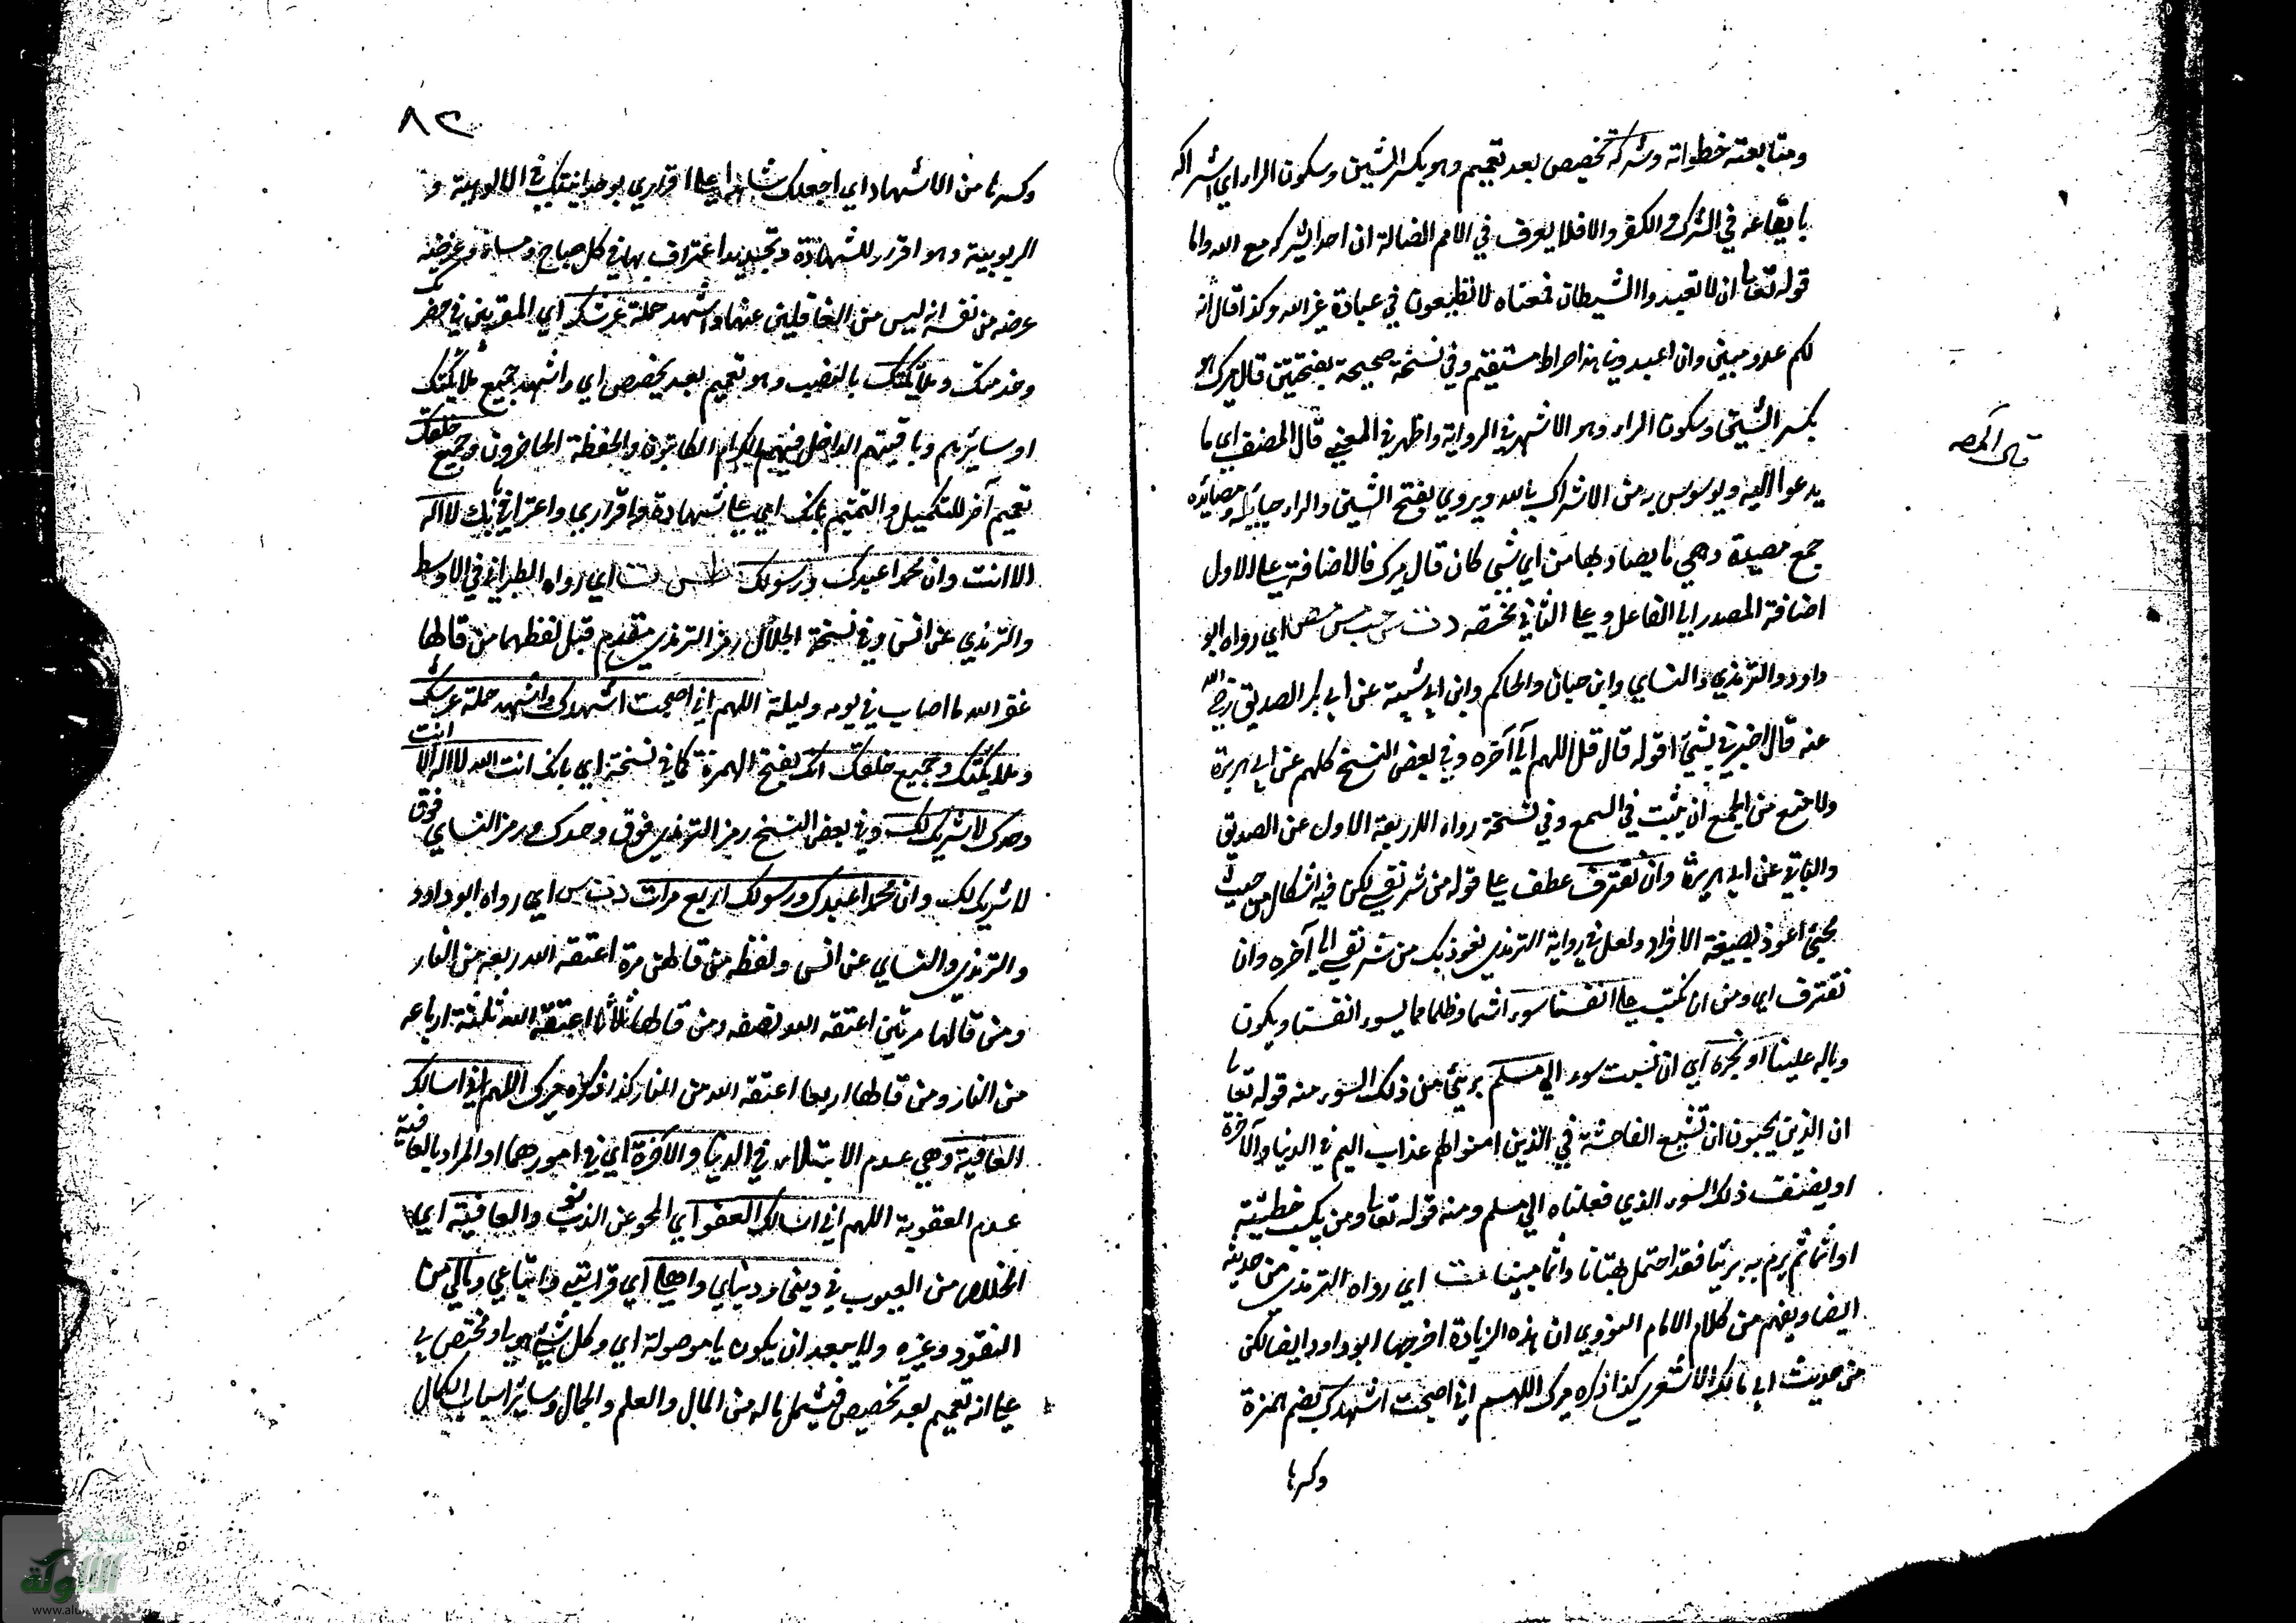 ومتابعته خطواته وشركه تخصيص بعد تعميم وهو بكسر الشين وسكون الراء اي اشراكه
بايقاعه في الشرك والكفر والا فلا يعرف في الامم الضالة ان احدا يشركه مع الله واما
قوله تعالى ان لا تعبدوا الشيطان فمعناه لا تطيعون في عبادة غير الله وكذا قال انه
لكم عدو مبين وان اعبدوني هذا صراط مستقيم وفي نسخة صحيحة بفتحتين قال ميرك هو
بكسر الشين وسكون الراء وهو الاشهر في الرواية واظهر في المعنى قال المصنف اي ما
قال المص
يدعو اليه ويوسوس به من الاشراك بالله ويروي بفتح الشين والراء حبايله ومصائده
جمع مصيدة وهي ما يصاد بها من اي شي كان قال ميرك فالاضافة على الاول
اضافة المصدر الى الفاعل وعلى الثاني محضه د ت س حب مس مص اي رواه ابو
داود والترمذي والنساي وابن حبان والحاكم وابن ابي شيبة عن ابي بكر الصديق رضي الله
عنه قال اخبرني بشيء اقوله قال قل اللهم الى آخره وفي بعض النسخ كلهم عن ابي هريرة
ولا منع من الجمع ان يثبت في السمع وفي نسخة رواه الاربعة الاول عن الصديق
والباقي عن ابي هريرة وان نقترف عطف على قوله من شر نفسي لكن فيه اشكال من حيث
مجيئ اعوذ بصيغة الافراد ولعل في رواية الترمذي نعوذ بك من شر نفسي الى آخره وان
نقترف اي ومن ان نكتب على انفسنا سوء اثما وظلما مما يسوء انفسنا ويكون
وباله علينا او نجره اي ان ننسبت سوء الى مسلم بريئ من ذلك السوء منه قوله تعالى
ان الذين يحبون ان تشيع الفاحشة في الذين امنوا لهم عذاب اليم في الدنيا والآخرة
او يضف ذلك السوء الذي فعلناه الى مسلم ومنه قوله تعالى ومن يكسب خطيئة
او اثما ثم يرم به بريئا فقد احتمل بهتانا واثما مبينا ت اي رواه الترمذي من حديثه
ايضا ويفهم من كلام الامام النووي ان هذه الزيادة اخرجها ابو داود ايضا لكن
من حديث ابي مالك الاشعري كذا ذكره ميرك اللهم اني اصبحت اشهدك بضم الهمزة
وكسرها
٨٢
وكسرها من الاشهاد اي اجعلك شاهدا على اقراري بوحدانيتك في الالوهية و
الربوبية وهو اقرار للشهادة وتجديد اعتراف بها في كل صباح ومساء وغرضه
عرضه من نفسه انه ليس من الغافلين عنها واشهد حملة عرشك اي المقربين في حضرتك
وخدمتك وملائكتك بالنصب وهو تعميم بعد تخصيص اي واشهد جميع ملائكتك
او سايرهم وباقيتهم الداخل فيهم الكرام الكاتبون والحفظة الحاضرون وجميع خلقك
تعميم آخر للتكميل والتتميم بانك اي على شهادة واقراري واعترافي بانك لا اله
الا انت وان محمدا عبدك ورسولك طس ت اي رواه الطبراني في الاوسط
والترمذي عن انس وفي نسخة الجلال رمز الترمذي مقدم قبل لفظهما من قالها
غفر الله ما اصاب في يومه وليلة اللهم اني اصبحت اشهدك واشهد حملة عرشك
وملائكتك وجميع خلقك انك بفتح الهمزة كما في نسخة اي بانك انت الله لا اله الا انت
وحدك لا شريك لك وفي بعض النسخ رمز الترمذي فوق وحدك ورمز النساي فوق
لا شريك لك وان محمدا عبدك ورسولك اربع مرات د ت س اي رواه ابو داود
والترمذي والنساي عن انس ولفظه من قالهن مرة اعتقه الله ربعه من النار
ومن قالها مرتين اعتقه الله نصفه ومن قالها ثلاثا اعتقه الله ثلثة ارباعه
من النار ومن قالها اربعا اعتقه الله من النار كذا ذكره ميرك اللهم اني اسالك
العافية وهي عدم الابتلاء في الدنيا والآخرة اي في امورهما او المراد بالعافية
عدم العقوبة اللهم اني اسالك العفو اي المحو عن الذنوب والعافية اي
الخلاص من العيوب في ديني ودنياي واهلي اي قرابتي واتباعي ومالي من
النقود وغيره ولا يبعد ان يكون ما موصولة اي وكل شيء هو لي او مختص بي
على انه تعميم بعد تخصيص فيشمل ماله من المال والعلم والجمال وساير اسباب الكمال
شبكة
الألوكة